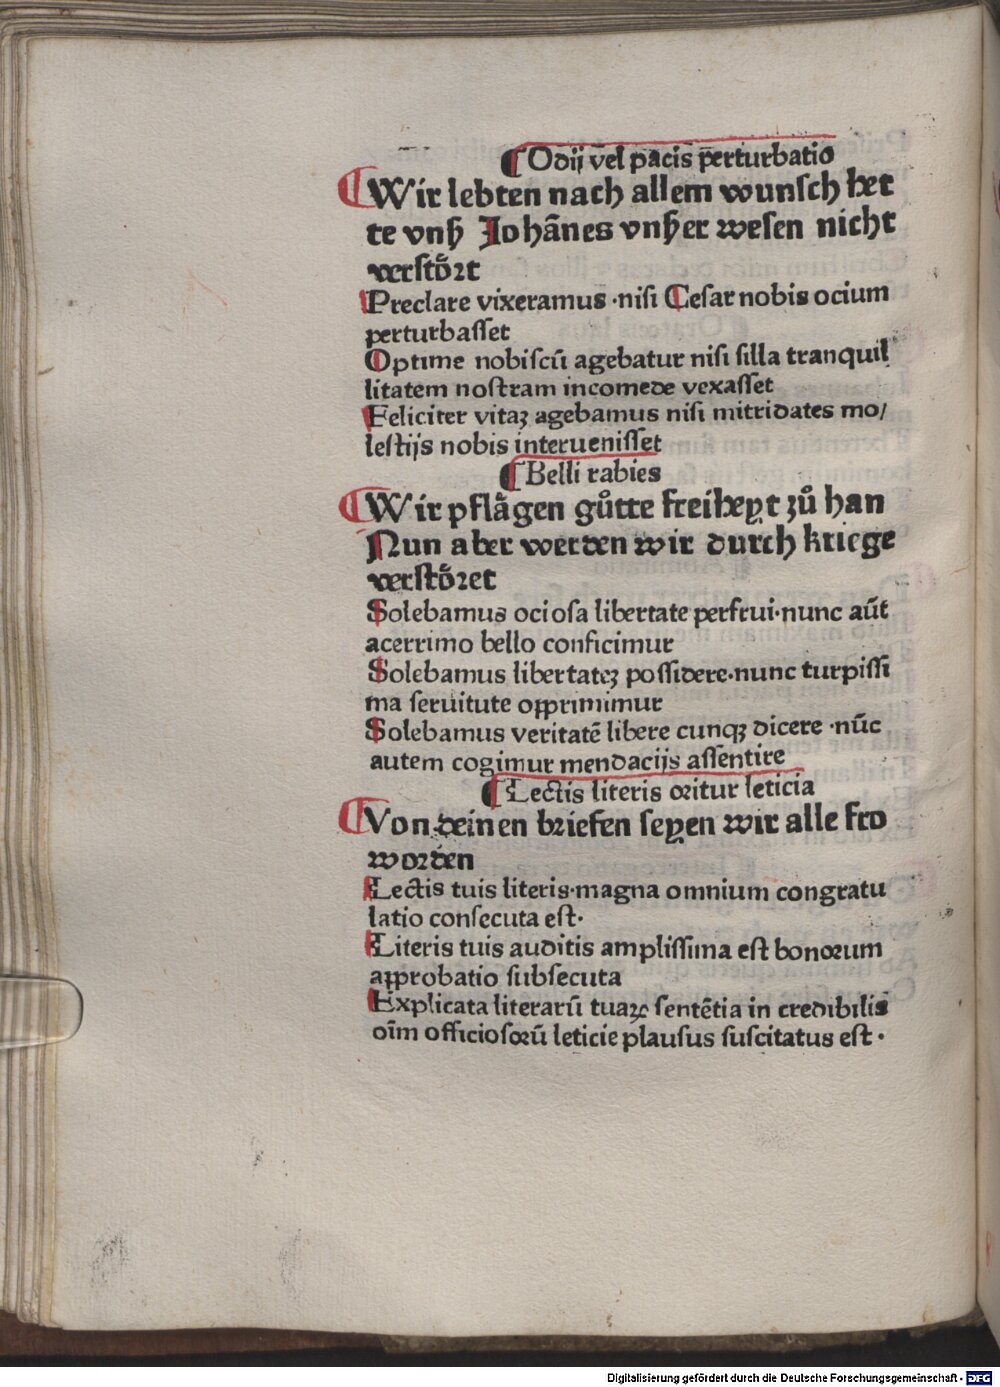 ¶ Odij vel pacis perturbatio
Wir lebten nach allem wunsch het
te vnß Johãnes vnßer wesen nicht
verstoͤrt
Preclare vixeramus ·nisi Cesar nobis ocium
perturbasset
Optime nobiscũ agebatur nisi silla tranquil
litatem nostram incomede vexasset
Feliciter vitaꝫ agebamus nisi mitridates mo/
lestijs nobis interuenisset
¶ Belli rabies
Wir pflaͤgen guͦtte freiheyt zuͦ han
Nun aber werden wir durch kriege
verstoͤret
Solebamus ociosa libertate perfrui·nunc aũt
acerrimo bello conficimur
Solebamus libertateꝫ possidere·nunc turpissi
ma seruitute opprimimur
Solebamus veritatẽ libere cunqꝫ dicere ·nũc
autem cogimur mendacijs assentire
¶ Lectis literis oritur leticia
Von deinen briefen seyen wir alle fro
worden
Lectis tuis literis·magna omnium congratu
latio consecuta est·
Literis tuis auditis amplissima est bonorum
approbatio subsecuta
Explicata literarũ tuaꝝ sentẽtia in credibilis
oĩm officiosorũ leticie plausus suscitatus est ·
Digitalisierung gefördert durch die Deutsche Forschungsgemeinschaft - DFG